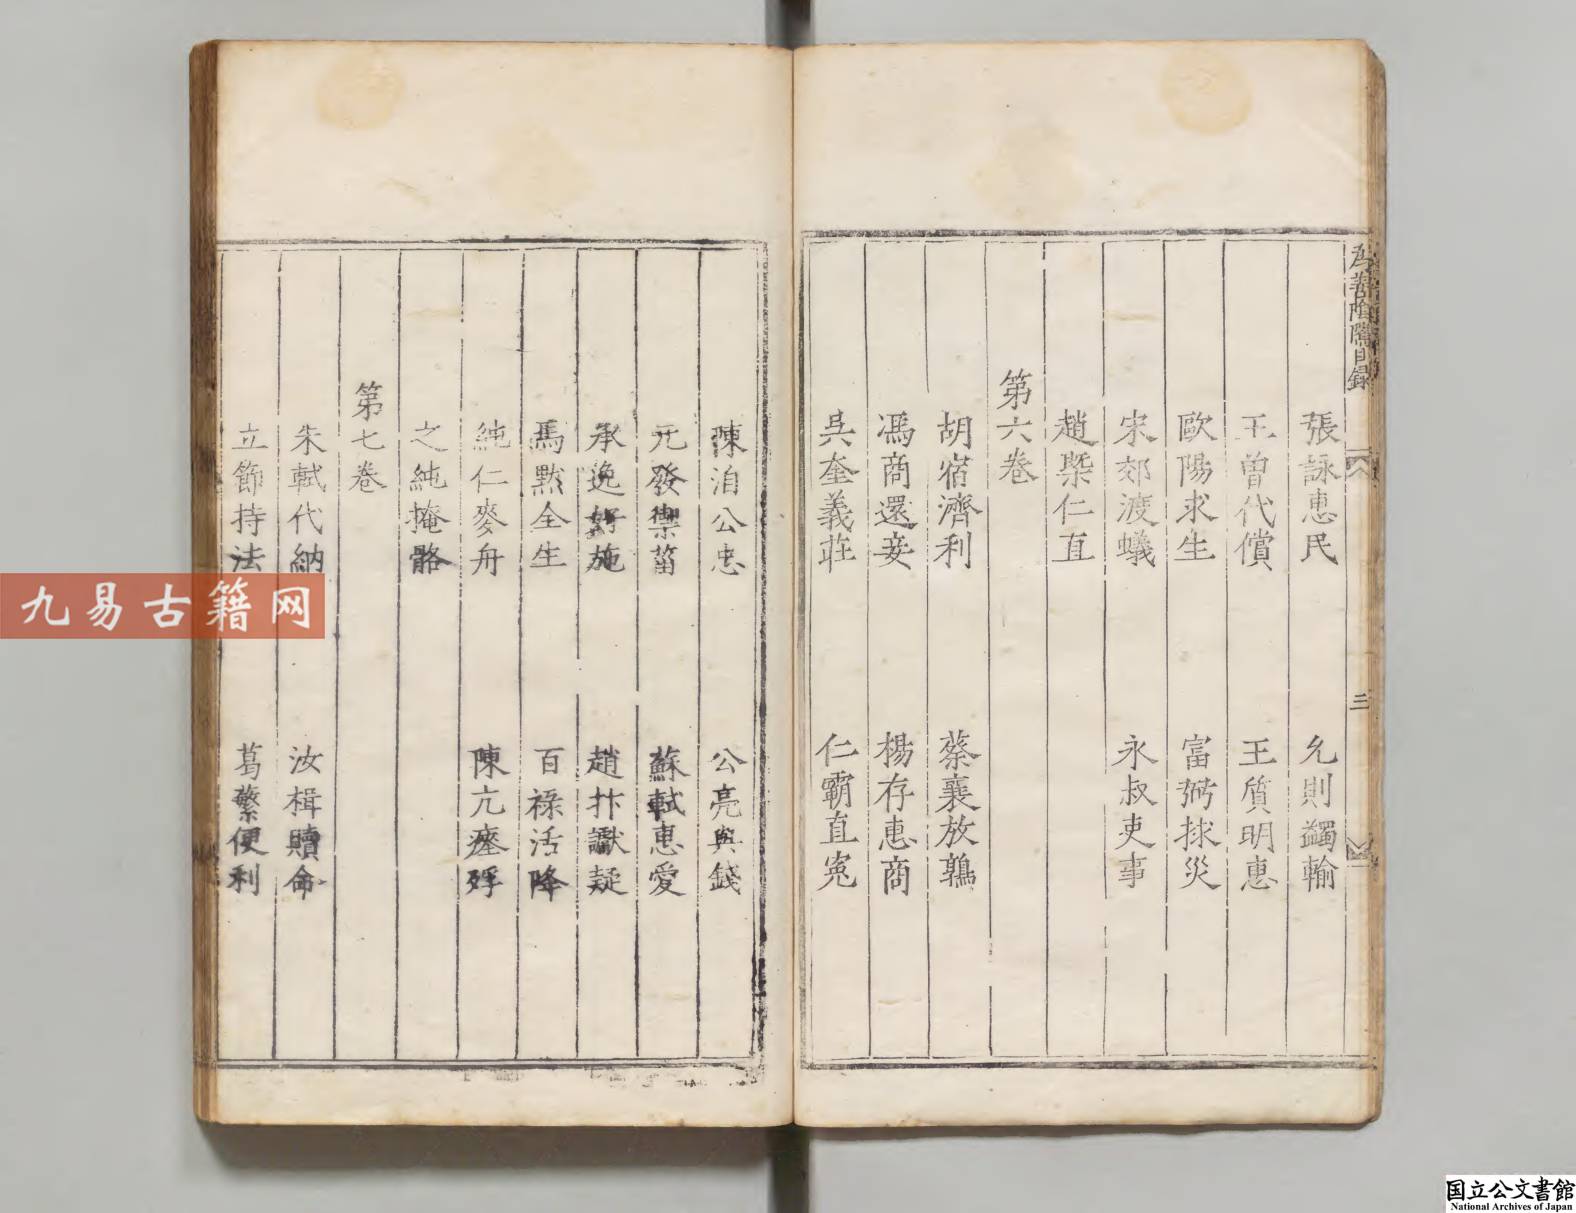 為善陰隲目録
三
張詠惠民 允則蠲輸
王曾代償 王質明惠
歐陽求生 富弼捄災
宋郊渡蟻 永叔吏事
趙槩仁直
第六卷
胡宿濟利 蔡襄放鶉
馮商還妾 楊存惠商
吳奎義莊 仁霸直冤
陳洎公忠 公亮與錢
元發禦菑 蘇軾惠愛
承逸好施 趙抃讞疑
馬黙全生 百祿活降
純仁麥舟 陳亢瘞殍
之純掩骼
第七卷
朱軾代納 汝楫贖命
立節持法 葛繁便利
九易古籍网
国立公文書館
National Archives of Japan